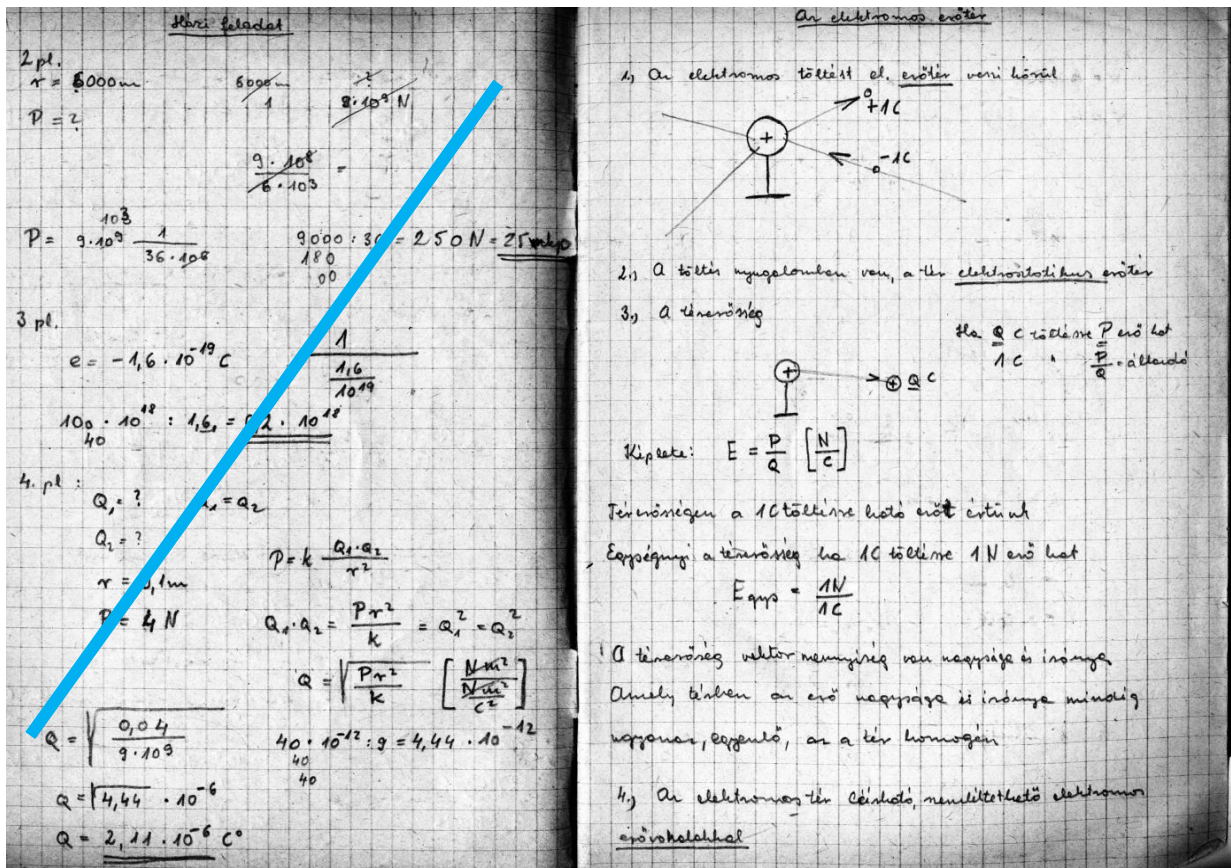 Házi feladat
2 pl.
r = 6000m 6000m ?
1 8·10⁹ N
P = ?
9·10⁶ / 6·10³ =
10³
P = 9·10⁹ 1 / 36·10⁶ 9000 : 36 = 250 N = 25
180
00
3 pl.
e = -1,6 · 10⁻¹⁹ C 1 / 1,6 / 10¹⁹
100 · 10¹⁸ : 1,6 = 2 · 10¹⁸
40
4. pl :
Q₁ = ? Q₁ = Q₂
Q₂ = ?
P = k Q₁·Q₂ / r²
r = 0,1m
P = 4 N
Q₁·Q₂ = Pr² / k = Q₁² = Q₂²
Q = √(Pr² / k) [Nm² / Nm² / C²]
Q = √(0,04 / 9·10⁹) 40 · 10⁻¹² : 9 = 4,44 · 10⁻¹²
40
40
Q = √4,44 · 10⁻⁶
Q = 2,11 · 10⁻⁶ C
Az elektromos erőtér
1, Az elektromos töltést el. erőtér veszi körül
+1C
+
-1C
2., A töltés nyugalomban van, a tér elektrosztatikus erőtér
3., A térerősség
Ha Q C töltésre P erő hat
1C " P/Q = állandó
+ + Q C
Képlete: E = P/Q [N/C]
Térerősségen a 1C töltésre ható erőt értünk
Egységnyi a térerősség ha 1C töltésre 1N erő hat
E egys = 1N / 1C
A térerősség vektor mennyiség van nagysága és iránya
Amely térben az erő nagysága és iránya mindig
ugyanaz, egyenlő, az a tér homogén
4., Az elektromos tér leírható, szemléltethető elektromos
erővonalakkal